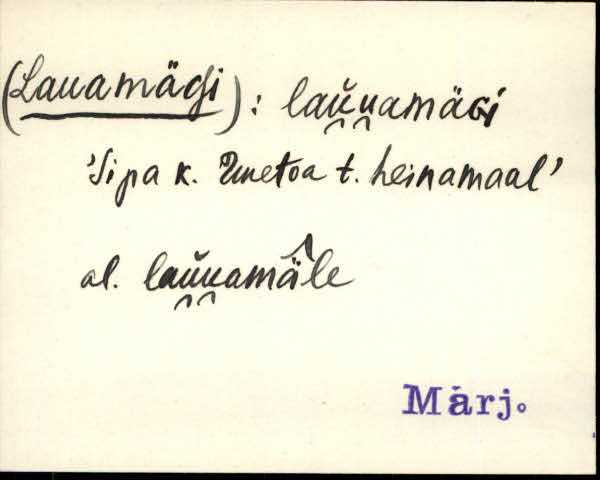 (Lauamägi): lau̯u̯amäɢi
'Sipa k. Unetoa t. heinamaal'
al. lau̯u̯amäle
Märj.